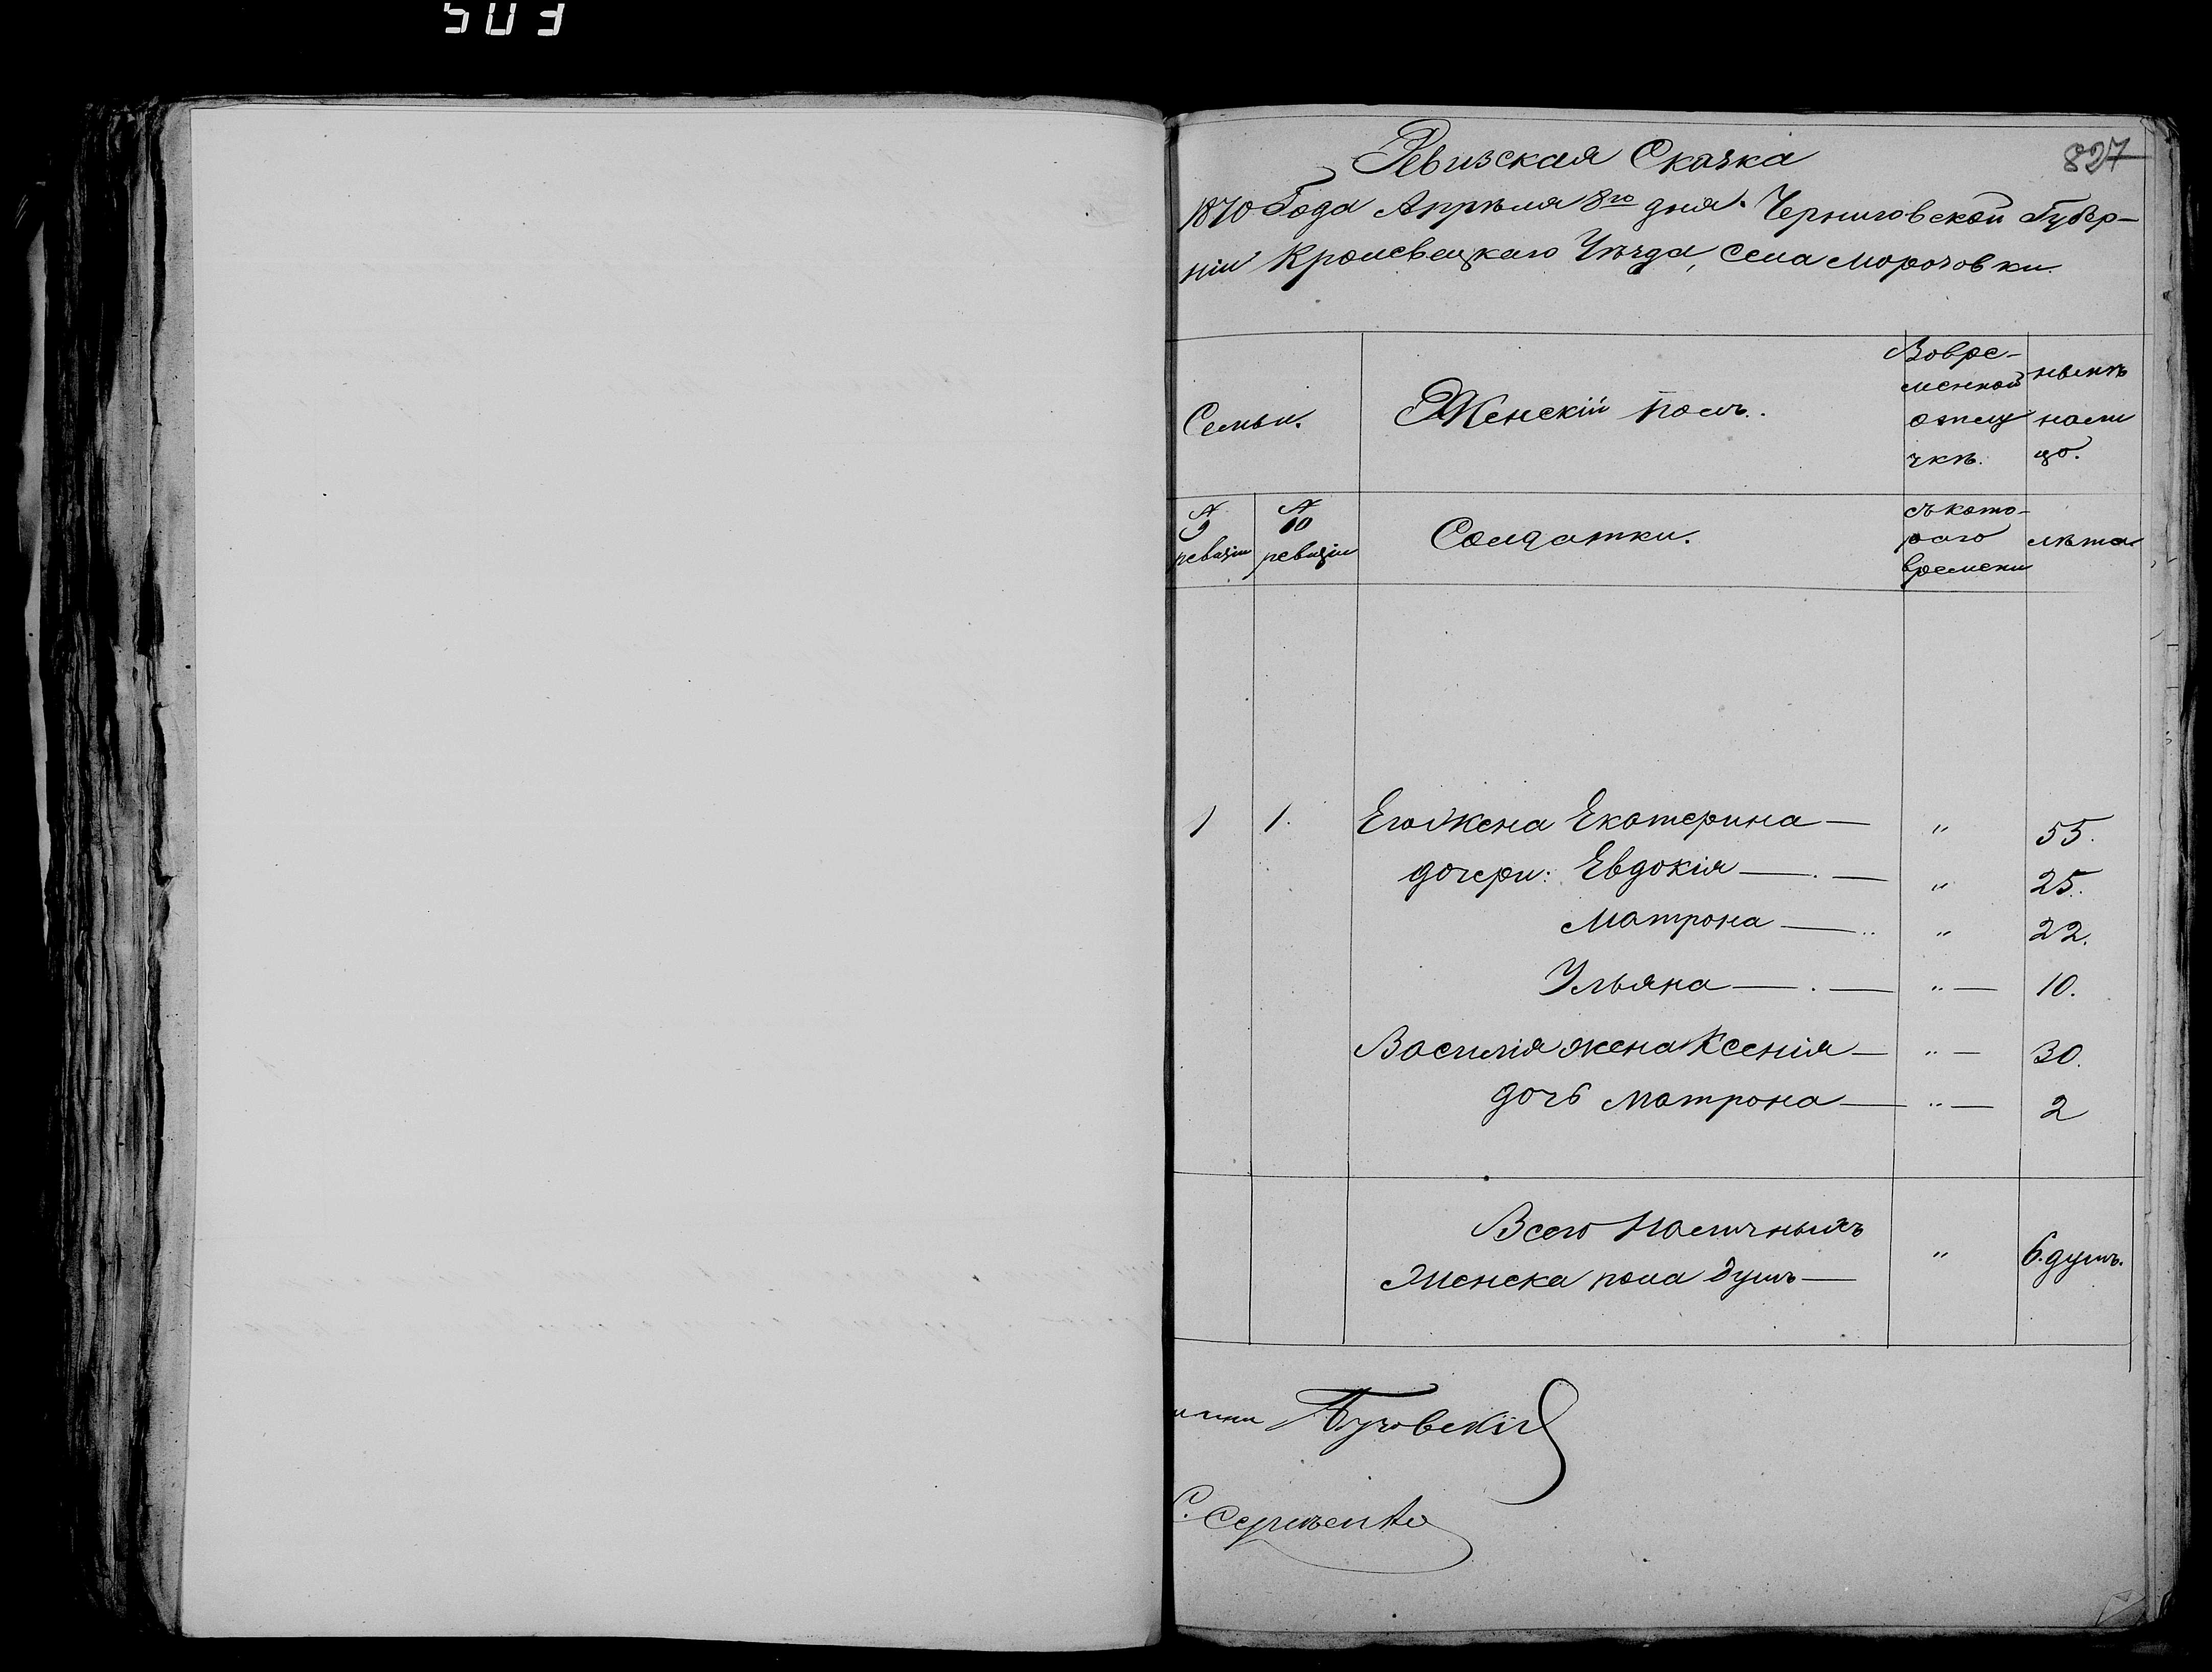 503
827
Ревизская Сказка
1870 Года Апрѣля 8го дня. Черниговской Губер–
ніи Кролевецкаго Уѣзда, Села Морозовки.
Семьи.
Женскій полъ.
Вовре–
менной
отлу
чкѣ.
нынѣ
нали
цо.
№
9
ревизіи
№
10
ревизіи
Солдатки.
съ кото–
раго
времени
лѣта.
1 1. Его Жена Екатерина — " 55.
дочери: Евдокія — . — " 25.
Матрона — .. " 22.
Ульяна — . — " — 10.
Василія жена Ксенія — " — 30.
дочь Матрона — " — 2
Всего Наличныхъ
Женска пола душъ — " 6. душъ.